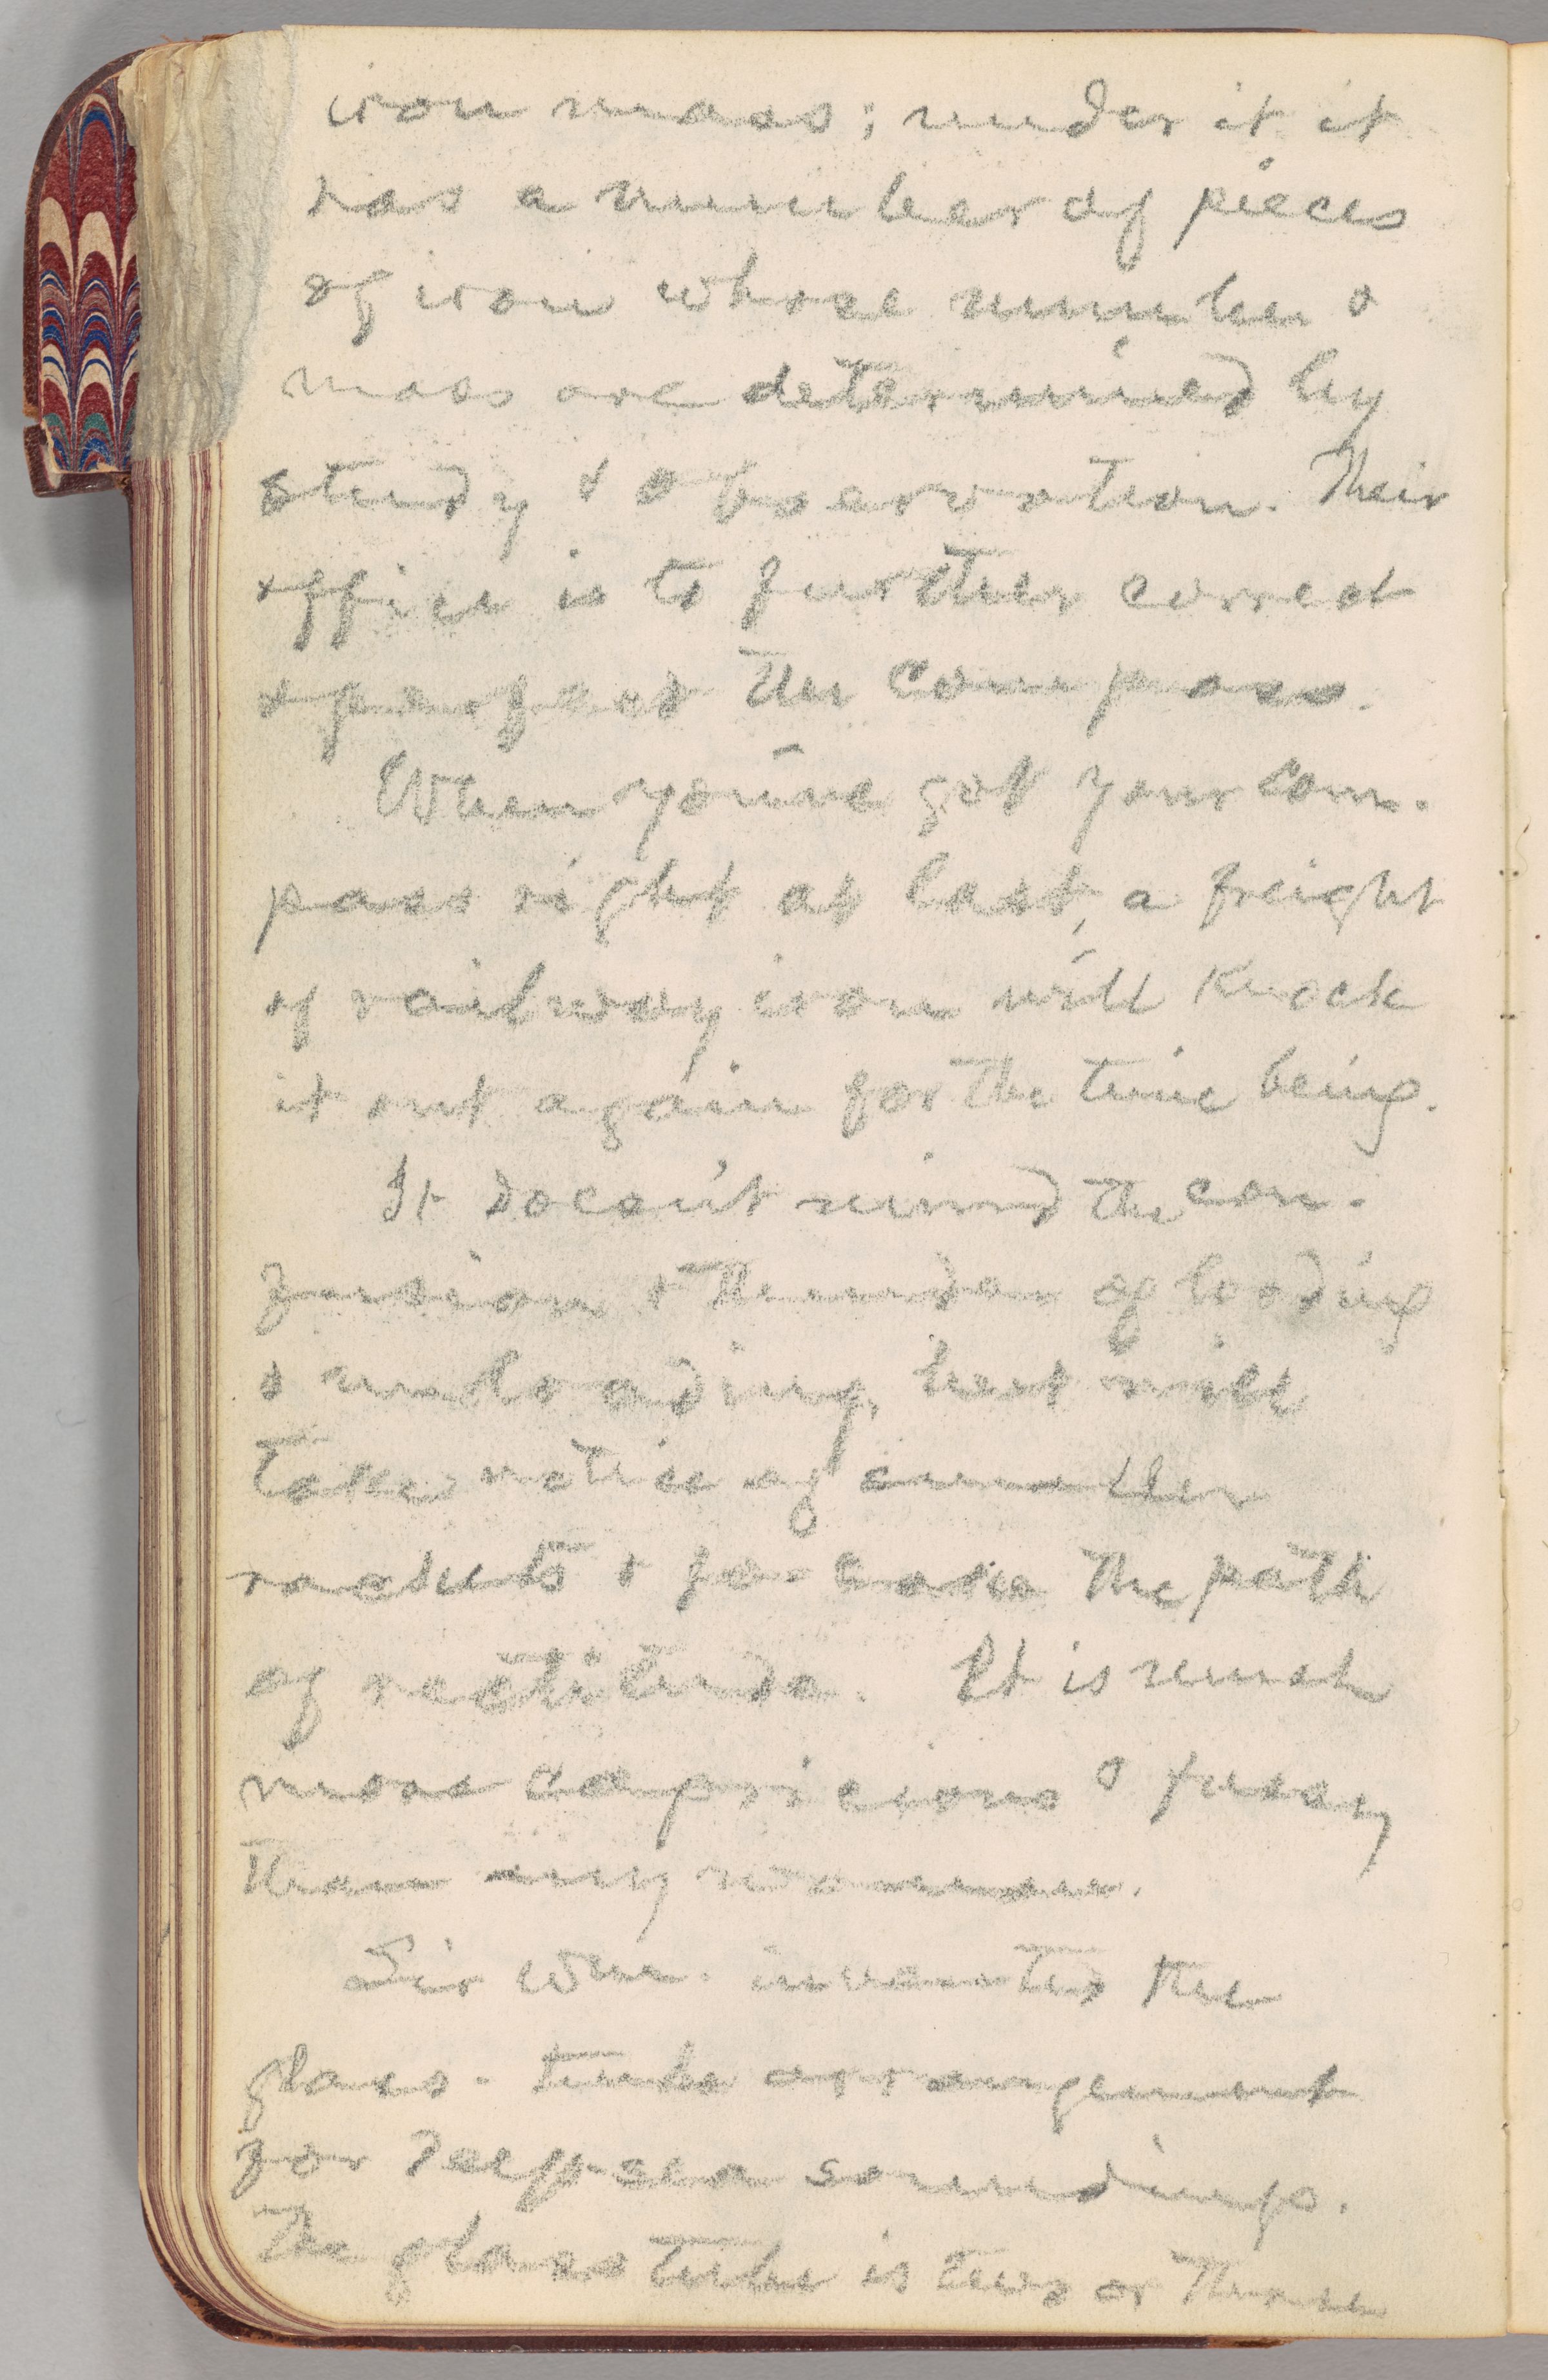 iron mass; under it it
has a number of pieces
of iron whose number &
mass are determined by
study & observation. Their
office is to further correct
& perfect the compass.
When you've got your com-
pass right at last, a freight
of railway iron will knock
it out again for the time being.
It doesn't mind the con-
fusion & thunder of loading
& unloading, but will
take notice of another
rackets & forsake the path
of rectitude. It is much
more capricious & fussy
than any woman.
Sir Wm. invented the
glass-tube arrangement
for deep-sea soundings.
The glass tube is two or three